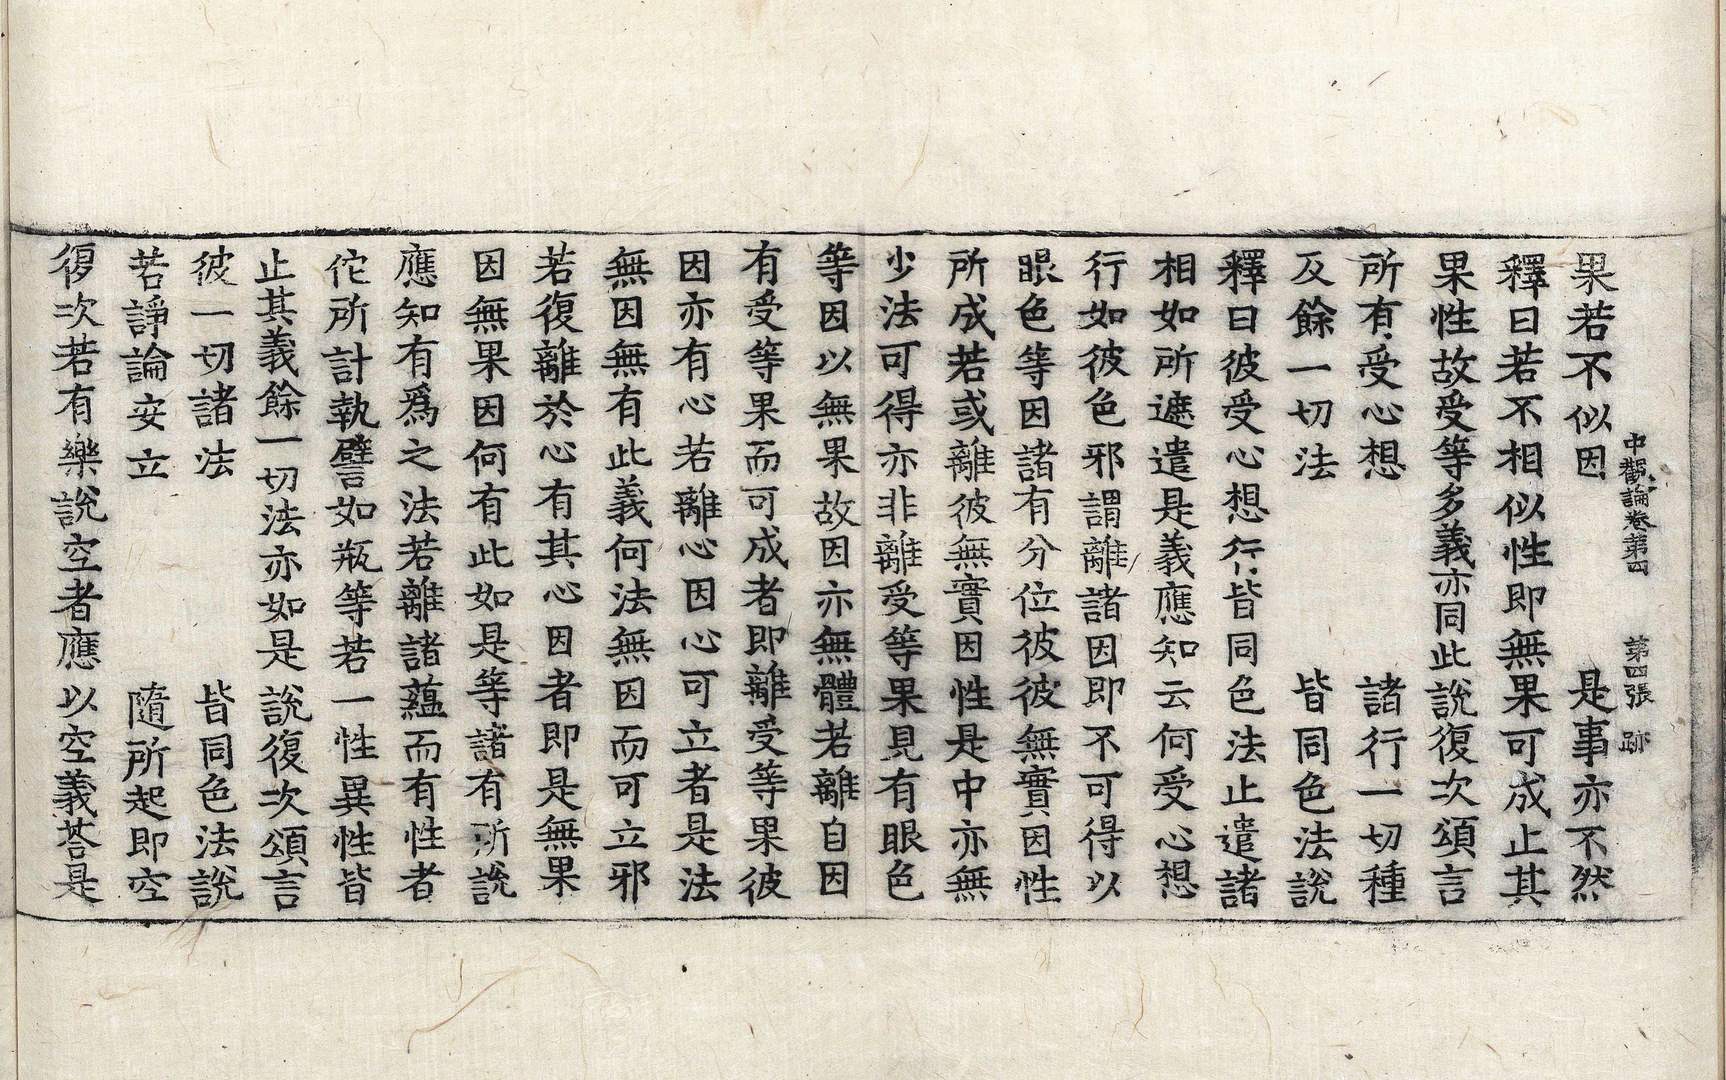 中觀論卷第四 第四張 跡
果若不似因 是事亦不然
釋曰若不相似性即無果可成止其
果性故受等多義亦同此說復次頌言
所有受心想 諸行一切種
及餘一切法 皆同色法說
釋曰彼受心想行皆同色法止遣諸
相如所遮遣是義應知云何受心想
行如彼色邪謂離諸因即不可得以
眼色等因諸有分位彼彼無實因性
所成若或離彼無實因性是中亦無
少法可得亦非離受等果見有眼色
等因以無果故因亦無體若離自因
有受等果而可成者即離受等果彼
因亦有心若離心因心可立者是法
無因無有此義何法無因而可立邪
若復離於心有其心因者即是無果
因無果因何有此如是等諸有所說
應知有為之法若離諸蘊而有性者
佗所計執譬如瓶等若一性異性皆
止其義餘一切法亦如是說復次頌言
彼一切諸法 皆同色法說
若諍論安立 隨所起即空
復次若有樂說空者應以空義荅是